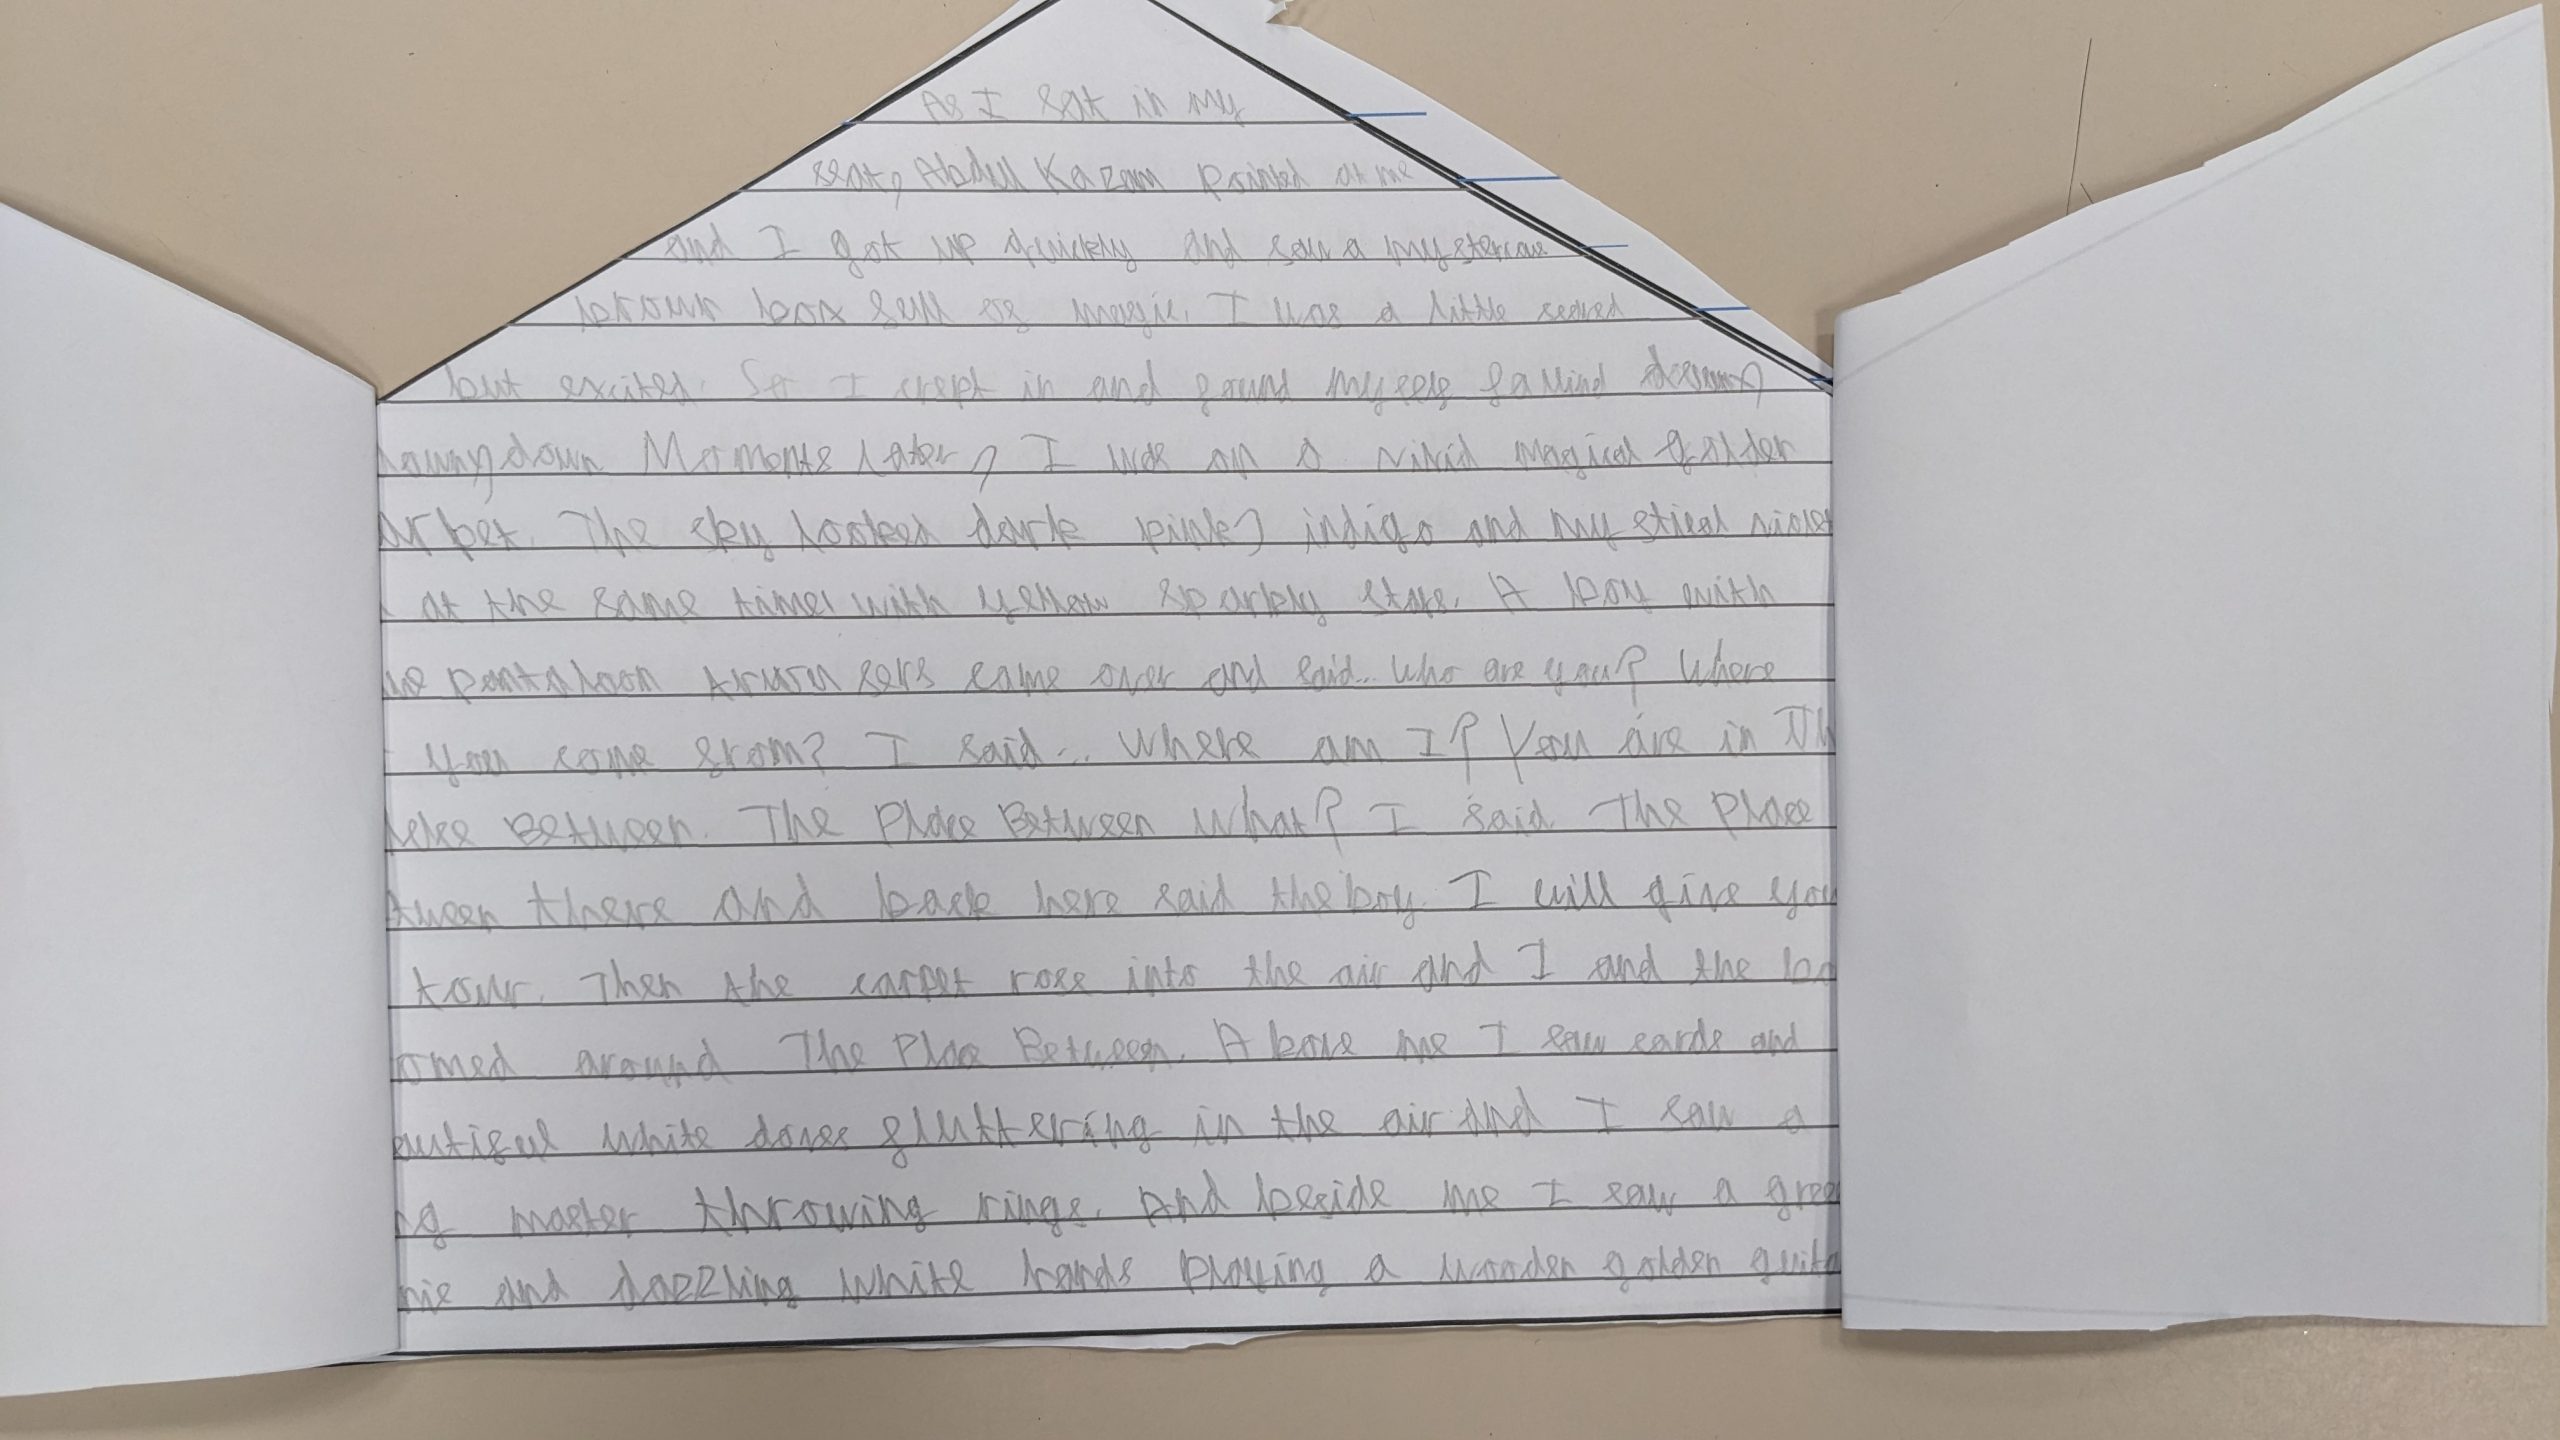 As I sat in my
seat, Abdul Kazam pointed at me
and I got up quickly and saw a
brown box full of magic. I was a little scared
but excited. So I crept in and found myself fallind down,
down, down Moments later, I was on a vivid magical golden
arpet. The sky looked dark pink, indigo and mystical violet
at the same time with yellow sparkly stars. A boy with
pantaloon came over and said... Who are you? Where
you come from? I said... Where am I? You are in Th
Between. The Place Between What? I said The Place
tween there and back here said the boy. I will give you
tour. Then the carpet rose into the air and I and the bo
omed around The Place Between. Above me I saw cards and
eautiful white doves fluttering in the air and I saw a
ng master throwing rings. And beside me I saw a gree
nie and dazzling white hands playing a wooden golden guita